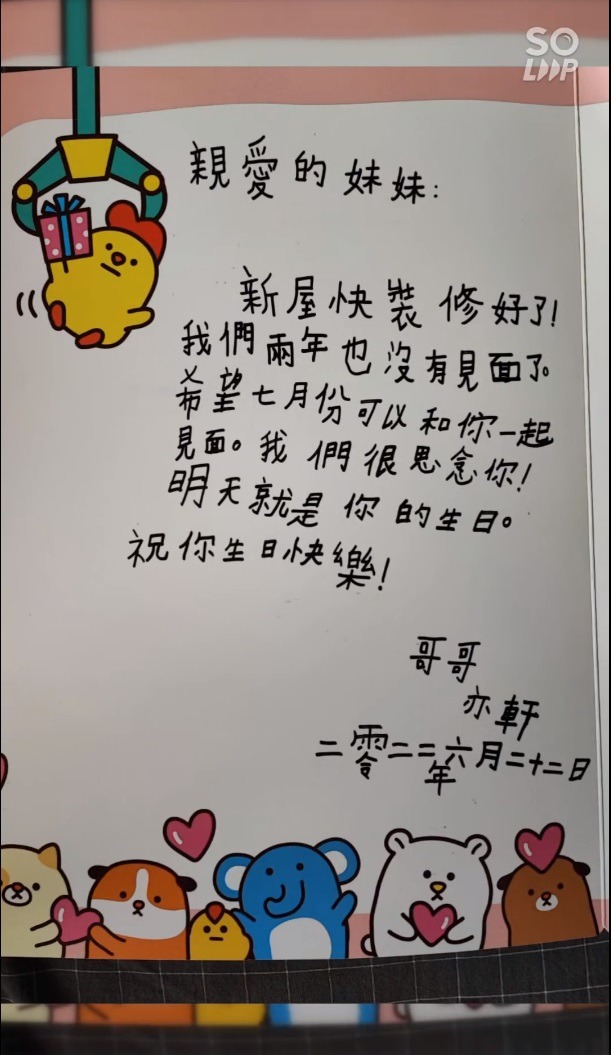 SO
LOOP
親愛的妹妹:
新屋快裝修好了!
我們兩年也沒有見面了。
希望七月份可以和你一起
見面。我們很思念你!
明天就是你的生日。
祝你生日快樂!
哥哥
亦軒
二零二二年六月二十二日